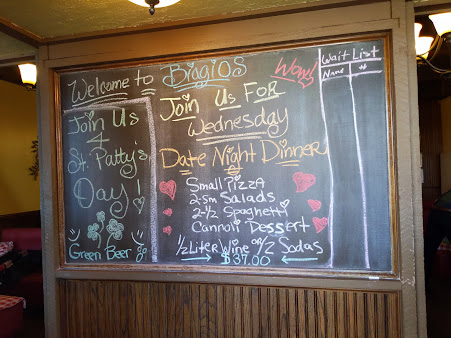 Welcome to BiagiOS
Join Us
4
St. Patty's
Day!
Green Beer
Join Us For
Wednesday
Date Night Dinner
Small Pizza
2-sm Salads
2-½ Spaghetti
Cannoli Dessert
½ Liter Wine or 2 Sodas
$37.00
Wow!
Wait List
Name #